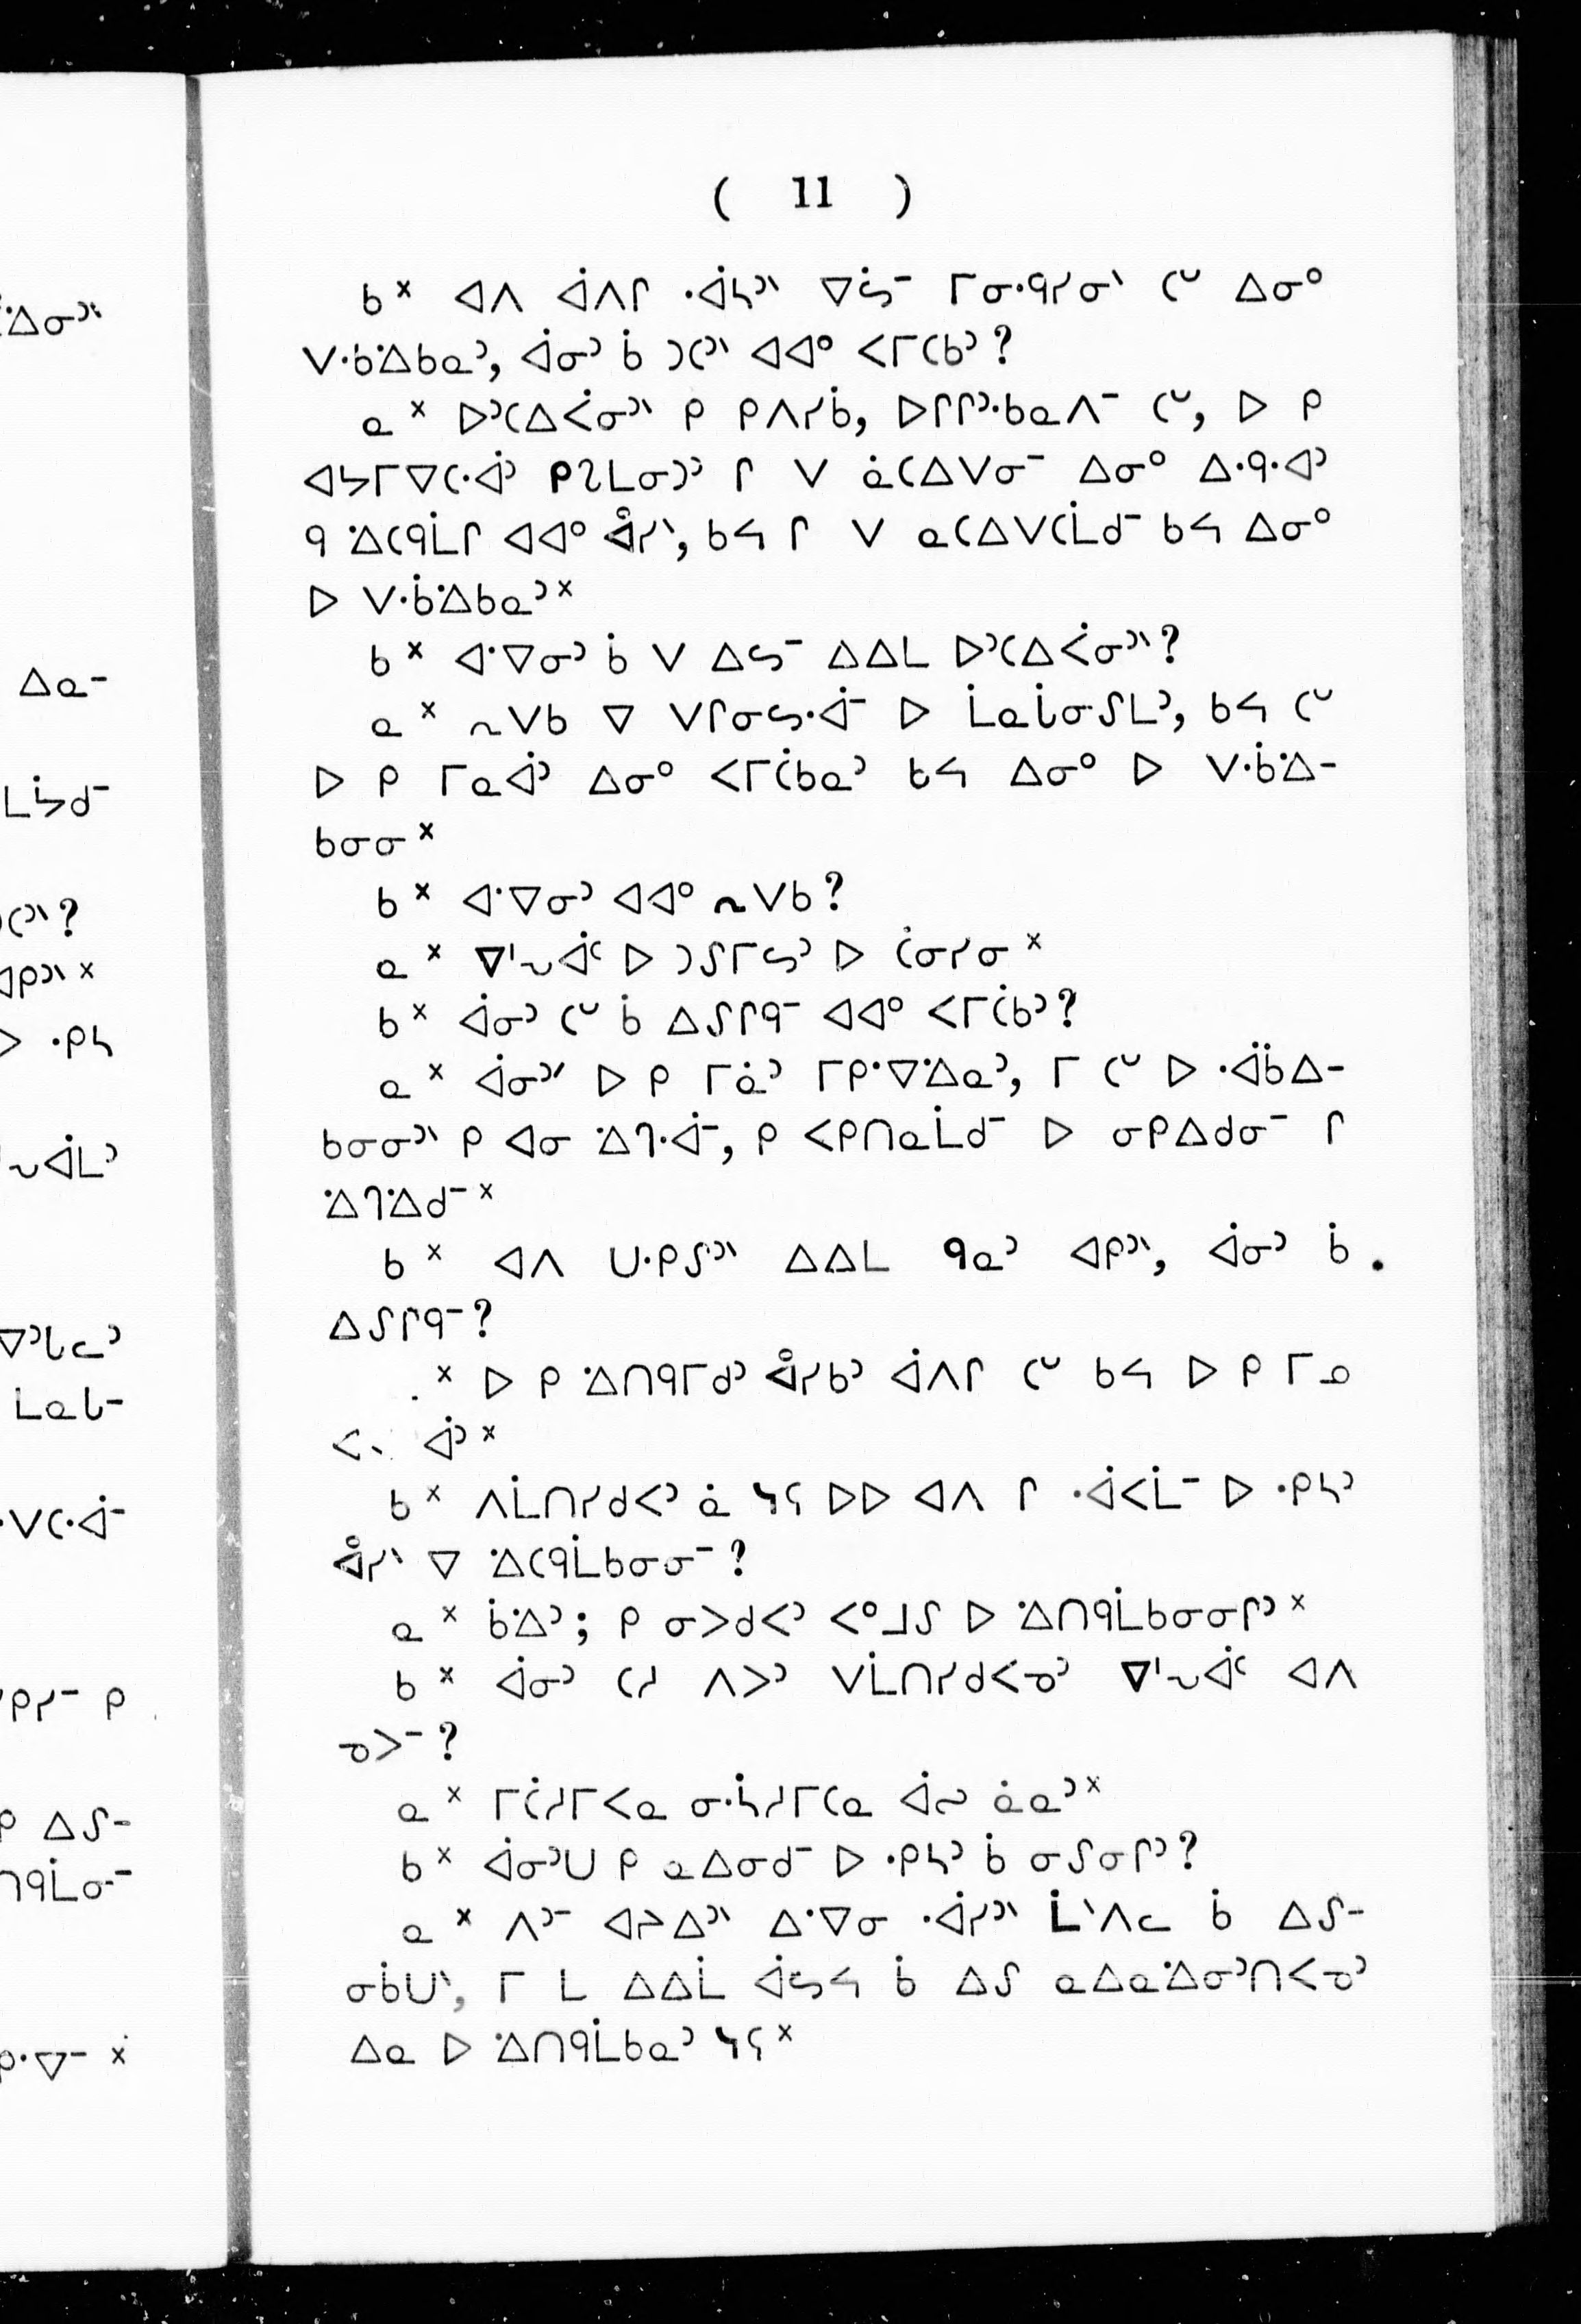 ( 11 )
ᑲ᙮ ᐊᐱ ᐋᐱᒋ ᐧᐋᓴᐣᐠ ᐁᔮᐨ ᒥᓂᐧᑫᓯᓂᐠ ᑕᐡ ᐃᓂᐤ
ᐯᐧᑲᐧᐃᑲᓇᐣ, ᐋᓂᐣ ᑳ ᑐᑕᐣᐠ ᐊᐊᐤ ᐸᒥᑕᑲᐣ?
ᓇ᙮ ᐅᐣᑕᐃᐹᓂᐣᐠ ᑭ ᑭᐱᓯᑳ, ᐅᒋᒋᐣᐧᑲᓇᐱᐨ ᑕᐡ, ᐅ ᑭ
ᐊᔭᒥᐁᑕᐧᐋᐣ ᑭᒋᒪᓂᑐᐣ ᒋ ᐯ ᓈᑕᐃᐯᓂᐨ ᐃᓂᐤ ᐃᐧᑫᐧᐊᐣ
ᑫ ᐧᐃᑕᑫᒫᒋ ᐊᐊᐤ ᐋᐃᓯᐠ, ᑲᔦ ᒋ ᐯ ᓇᑕᐃᐯᑕᒫᑯᐨ ᑲᔦ ᐃᓂᐤ
ᐅ ᐯᐧᑳᐧᐃᑲᓇᐣ᙮
ᑲ᙮ ᐊᐧᐁᓂᐣ ᑳ ᐯ ᐃᔕᐨ ᐃᐃᒪ ᐅᐣᑕᐃᐹᓂᐣᐠ?
ᓇ᙮ ᕆᐯᑲ ᐁ ᐯᒋᓂᔕᐧᐋᐨ ᐅ ᒫᓇᒑᓂᔑᒪᐣ, ᑲᔦ ᑕᐡ
ᐅ ᑭ ᒥᓇᐋᐣ ᐃᓂᐤ ᐸᒥᑖᑲᓇᐣ ᑲᔦ ᐃᓂᐤ ᐅ ᐯᐧᑳᐧᐃ-
ᑲᓂᓂ᙮
ᑲ᙮ ᐊᐧᐁᓂᐣ ᐊᐊᐤ ᕆᐯᑲ?
ᓇ᙮ ᐁᑊᕃᐋᑦ ᐅ ᑐᔑᒥᔕᐣ ᐅ ᑖᓂᓯᓂ᙮
ᑲ᙮ ᐋᓂᐣ ᑕᐡ ᑳ ᐃᔑᒋᑫᐨ ᐊᐊᐤ ᐸᒥᑖᑲᐣ?
ᓇ᙮ ᐋᓂᐣᐟ ᐅ ᑭ ᒥᓈᐣ ᒥᑭᐧᐁᐧᐃᓇᐣ, ᒥ ᑕᐡ ᐅ ᐧᐋᑳᐃ-
ᑲᓂᓂᐣᐠ ᑭ ᐊᓂ ᐧᐃᒉᐧᐋᐨ, ᑭ ᐸᑭᑎᓇᒫᑯᐨ ᐅ ᓂᑭᐃᑯᓂᐨ ᒋ
ᐧᐃᒉᐧᐃᑯᐨ᙮
ᑲ᙮ ᐊᐱ ᑌᐧᑭᔑᐣᐠ ᐃᐃᒪ ᑫᓇᐣ ᐊᑭᐣᐠ, ᐋᓂᐣ ᑳ
ᐃᔑᒋᑫᐨ?
᙮ ᐅ ᑭ ᐧᐃᑎᑫᒥᑯᐣ ᐋᐃᓯᑲᐣ ᐋᐱᒋ ᑕᐡ ᑲᔦ ᐅ ᑭ ᒥᓄ
ᑲ᙮ ᐱᒫᑎᓯᑯᐸᐣ ᓈ ᓴᕋ ᐅᐅ ᐊᐱ ᒋ ᐧᐋᐸᒫᐨ ᐅ ᐧᑭᓴᐣ
ᐋᐃᓯᐠ ᐁ ᐧᐃᑕᑫᒫᑲᓂᓂᐨ?
ᓇ᙮ ᑳᐧᐃᐣ; ᑭ ᓂᐳᑯᐸᐣ ᐸᐤᒧᔑ ᐅ ᐧᐃᑎᑫᒫᑲᓂᓂᒋᐣ᙮
ᑲ᙮ ᐋᓂᐣ ᑕᓱ ᐱᐳᐣ ᐯᒫᑎᓯᑯᐸᓀᐣ ᐁᑊᕃᐋᑦ ᐊᐱ
ᓀᐳᐨ?
ᓇ᙮ ᒥᑖᓱᒥᐸᓇ ᓂᐧᓵᓱᒥᑕᓇ ᐋᔑ ᓈᓇᐣ᙮
ᑲ᙮ ᐋᓂᐣᑌ ᑭ ᓇᐃᓂᑯᐨ ᐅ ᐧᑭᓴᐣ ᑳ ᓂᔑᓂᒋᐣ?
ᓇ᙮ ᐱᐣᐨ ᐊᔨᐃᐣᐠ ᐃᐧᐁᓂ ᐧᐋᓯᐣᐠ ᒫᐠᐱᓚ ᑳ ᐃᔑ-
ᓂᑳᑌᐠ, ᒥ ᒪ ᐃᐃᒫ ᐋᔕᔦ ᑳ ᐃᔑ ᓇᐃᓇᐧᐃᓂᐣᑎᐸᓀᐣ
ᐃᓇ ᐅ ᐧᐃᑎᑫᒫᑲᓇᐣ ᓴᕋ᙮